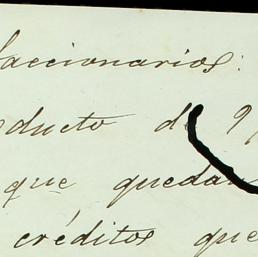 laccionarios:
oducto de 9
que quedan
créditos que